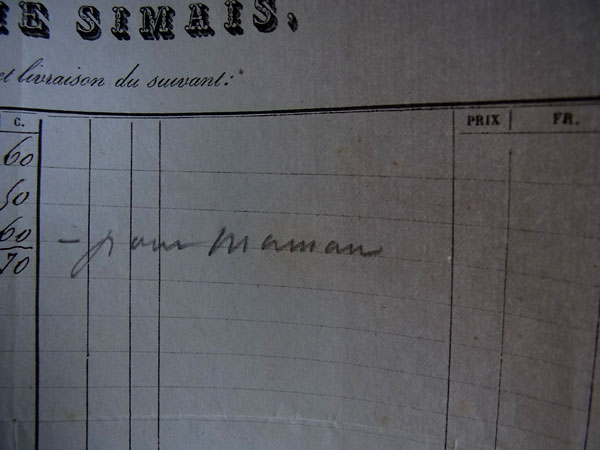 E SIMAIS,
et livraison du suivant:
C. PRIX FR.
60
50
60 – pour Maman
70